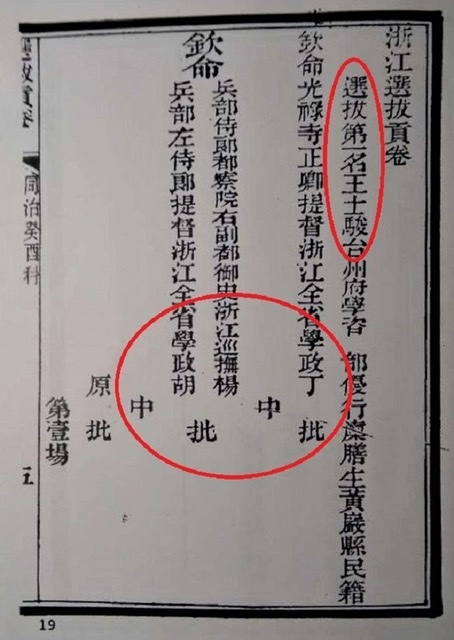 浙江選拔貢卷
選拔第一名王士駿台州府學咨 部優行廩膳生黃巖縣民籍
欽命光祿寺正卿提督浙江全省學政丁 批
中
欽命
兵部侍郎都察院右副都御史浙江巡撫楊 批
兵部左侍郎提督浙江全省學政胡
中
原批
第壹場
選拔貢卷 同治癸酉科 五
19